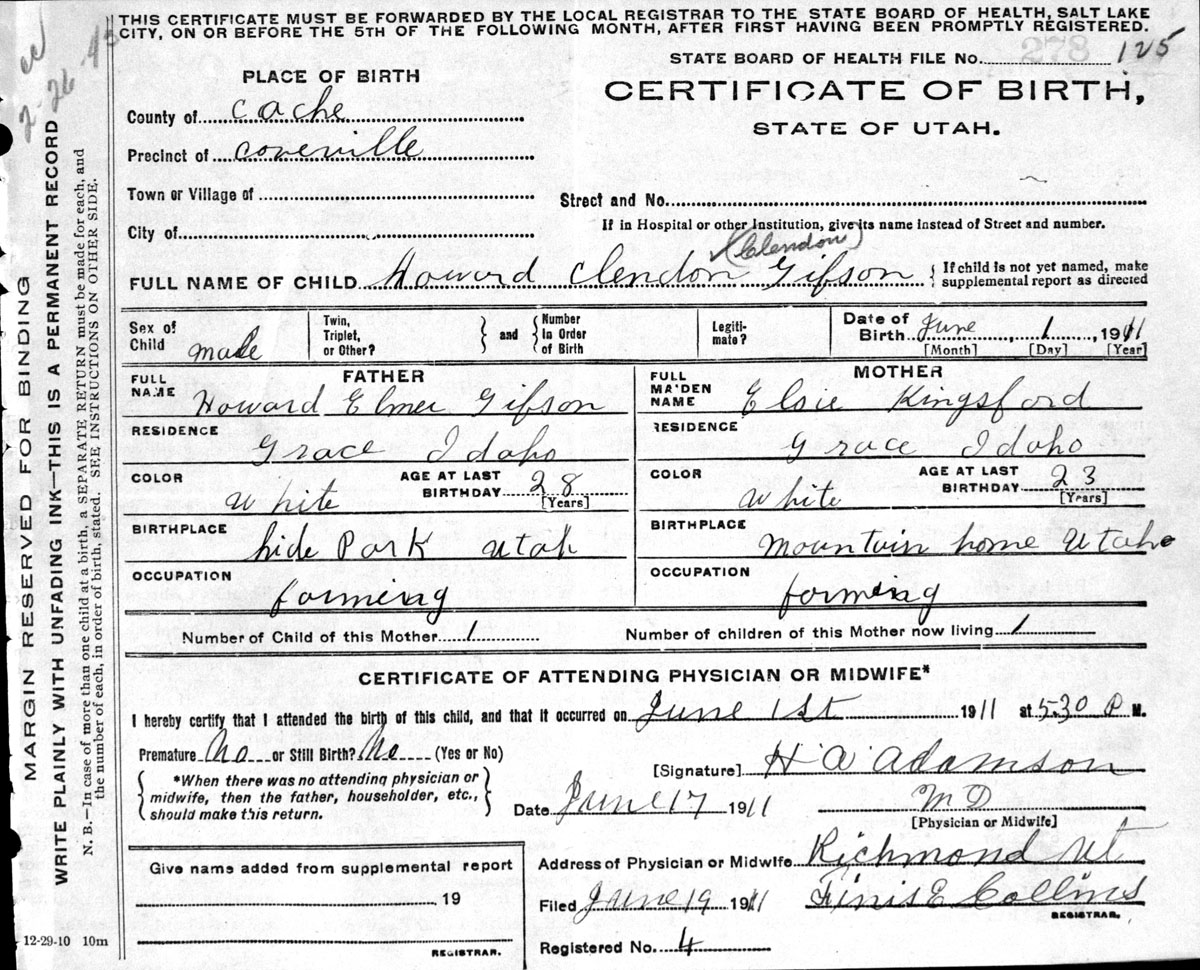 THIS CERTIFICATE MUST BE FORWARDED BY THE LOCAL REGISTRAR TO THE STATE BOARD OF HEALTH, SALT LAKE
CITY, ON OR BEFORE THE 5TH OF THE FOLLOWING MONTH, AFTER FIRST HAVING BEEN PROMPTLY REGISTERED.
2-26-45
MARGIN RESERVED FOR BINDING
WRITE PLAINLY WITH UNFADING INK—THIS IS A PERMANENT RECORD
N. B.—In case of more than one child at a birth, a SEPARATE RETURN must be made for each, and
the number of each, in order of birth, stated. SEE INSTRUCTIONS ON OTHER SIDE.
STATE BOARD OF HEALTH FILE No. 278 125
PLACE OF BIRTH
CERTIFICATE OF BIRTH,
STATE OF UTAH.
County of Cache
Precinct of Coveville
Town or Village of
Street and No.
If in Hospital or other Institution, give its name instead of Street and number.
City of
(Clendon)
FULL NAME OF CHILD Howard Clendon Gibson { If child is not yet named, make
supplemental report as directed
Sex of Child male
Twin, Triplet, or Other? } and { Number In Order of Birth
Legiti-mate?
Date of Birth June 1, 1911
[Month] [Day] [Year]
FATHER
FULL NAME Howard Elmer Gibson
RESIDENCE Grace Idaho
COLOR White
AGE AT LAST BIRTHDAY 28 [Years]
BIRTHPLACE hide Park Utah
OCCUPATION farming
MOTHER
FULL MAIDEN NAME Elsie Kingsford
RESIDENCE Grace Idaho
COLOR White
AGE AT LAST BIRTHDAY 23 [Years]
BIRTHPLACE Mountain home Utah
OCCUPATION farming
Number of Child of this Mother 1
Number of children of this Mother now living 1
CERTIFICATE OF ATTENDING PHYSICIAN OR MIDWIFE*
I hereby certify that I attended the birth of this child, and that it occurred on June 1st 1911 at 5:30 P M.
Premature No or Still Birth? No (Yes or No)
{ *When there was no attending physician or
midwife, then the father, householder, etc.,
should make this return. }
[Signature] H A Adamson
Date June 17 1911
M D
[Physician or Midwife]
Address of Physician or Midwife Richmond Ut
Give name added from supplemental report
19
REGISTRAR.
Filed June 19 1911 Finis E Collins
REGISTRAR.
Registered No. 4
12-29-10 10m